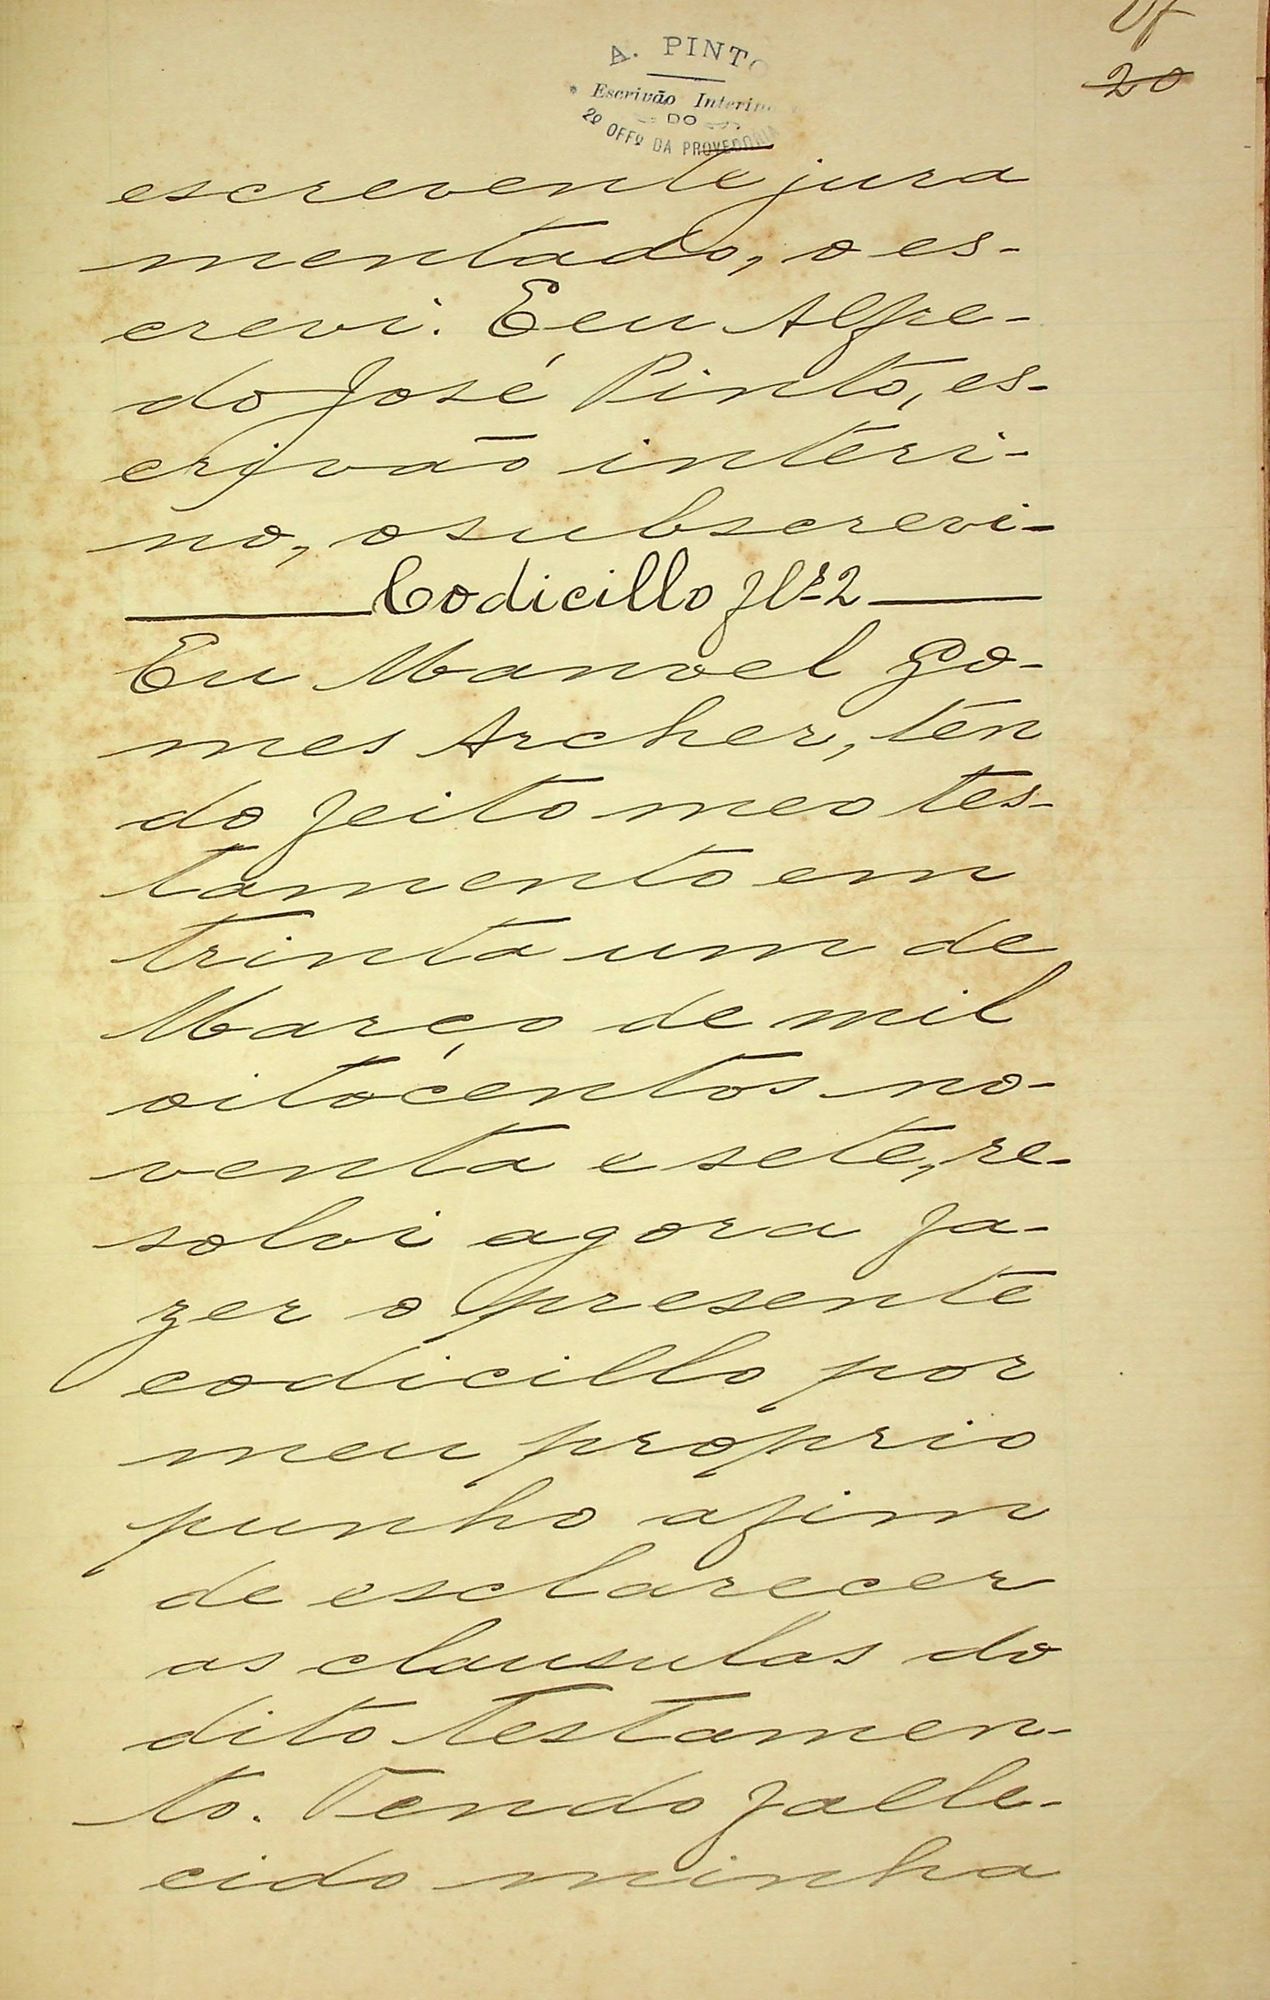 20
A. PINTO
Escrivão Interino
DO
2º OFFº DA PROVEDORIA
escrevente jura
mentado, o es-
crevi. E eu Alfre-
do José Pinto, es-
crivão interi-
no, o subscrevi-
Codicillo Nº 2
Eu Manoel Go-
mes Archer, ten
do feito meo tes-
tamento em
trinta um de
Março de mil
oitocentos no-
venta e sete, re-
solvi agora fa-
zer o presente
codicillo por
meu proprio
punho afim
de esclarecer
as clausulas do
dito testamen-
to. Tendo falle-
cido minha